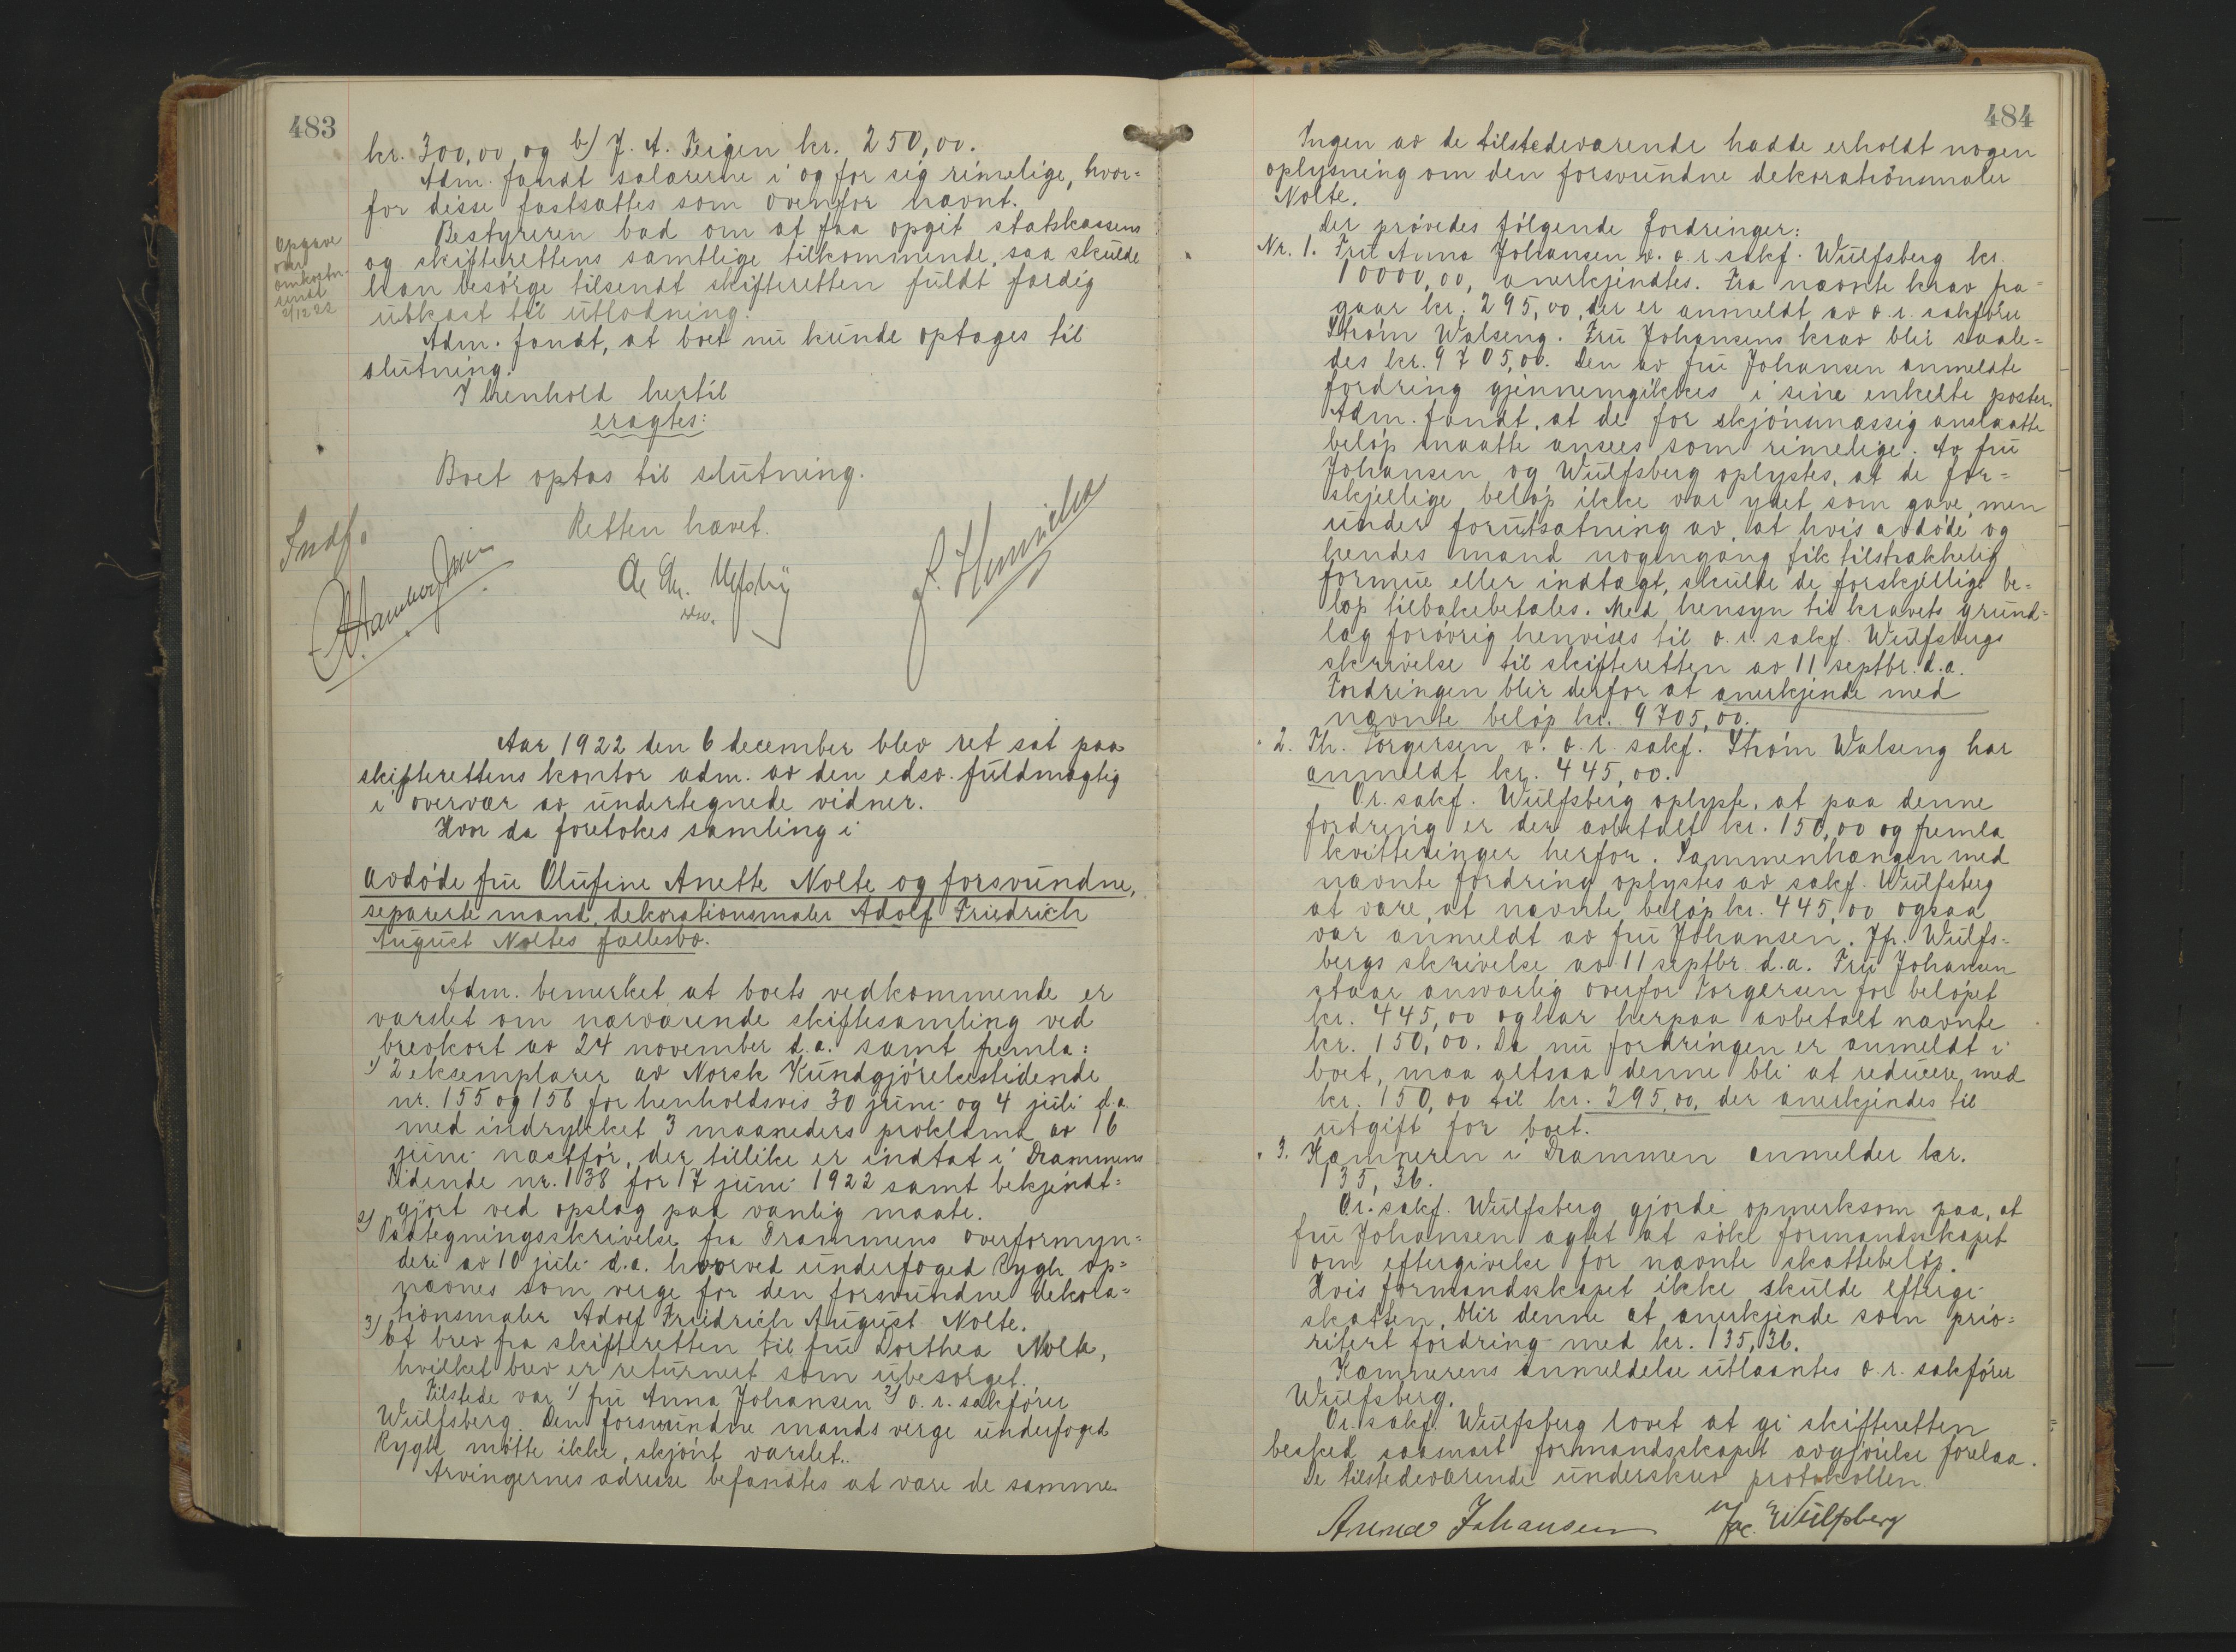 483
kr. 300,00 og b) J. A. Teigen kr. 250,00.
Adm. fandt salærerne i og for sig rimelige, hvor=
for disse fastsattes som ovenfor nævnt.
Bestyreren bad om at faa opgit statskassens
og skifterettens samtlige tilkommende, saa skulde
han besørge tilsendt skifteretten fuldt færdig
utkast til utlodning.
Opgave
over
omkostn.
sendt
2/12 22
Adm. fandt, at boet nu kunde optages til
slutning.
I henhold hertil
eragtes:
Boet optas til slutning.
Retten hævet.
Indf.
Aar 1922 den 6 december blev ret sat paa
skifterettens kontor adm. av den edsv. fuldmægtig
i overvær av undertegnede vidner.
Hvor da foretokes samling i
avdøde fru Olufine Anette Nolte og forsvundne,
separerte mand, dekorationsmaler Adolf Friedrich
August Noltes fællesbo.
Adm. bemerket at boets vedkommende er
varslet om nærværende skiftesamling ved
brevkort av 24 november d.a. samt fremla:
1) 2 eksemplarer av Norsk Kundgjørelsestidende
nr. 155 og 158 for henholdsvis 30 juni og 4 juli d.a.
med indrykket 3 maaneders proklama av 16
juni næstfør, der tillike er indtat i Drammens
Tidende nr. 138 for 17 juni 1922 samt bekjendt=
gjort ved opslag paa vanlig maate.
2) Paategningsskrivelse fra Drammens overformyn=
deri av 10 juli d.a. hvorved underfoged Rygh op=
nævnes som verge for den forsvundne dekora=
tionsmaler Adolf Friedrich August Nolte.
3) Et brev fra skifteretten til fru Dorthea Nolte,
hvilket brev er returnert som ubesørget.
Tilstede var 1) fru Anna Johansen 2) o.r. sakfører
Wulfsberg. Den forsvundne mands verge underfoged
Rygh møtte ikke, skjønt varslet.
Arvingernes adresse befandtes at være de samme
484
Ingen av de tilstedeværende hadde erholdt nogen
oplysning om den forsvundne dekorationsmaler
Nolte.
Der prøvedes følgende fordringer:
Nr. 1. Fru Anna Johansen v. o.r. sakf. Wulfsberg kr.
10000,00, anerkjendtes. Fra nævnte krav fra=
gaar kr. 295,00, der er anmeldt av o.r. sakfører
Strøm Walseng. Fru Johansens krav blir saale=
des kr. 9705,00. Den av fru Johansen anmeldte
fordring gjennemgikkes i sine enkelte poster.
Adm. fandt, at de for skjønsmæssig anslaatte
beløp maatte ansees som rimelige. Av fru
Johansen og Wulfsberg oplystes, at de for=
skjellige beløp ikke var ydet som gave, men
under forutsætning av, at hvis avdøde og
hendes mand nogengang fik tilstrækkelig
formue eller indtægt, skulde de forskjellige be=
løp tilbakebetales. Med hensyn til kravets grund=
lag forøvrig henvises til o.r. sakf. Wulfsbergs
skrivelse til skifteretten av 11 septbr. d.a.
Fordringen blir derfor at anerkjende med
nævnte beløp kr. 9705,00.
" 2. Th. Torgersen v. o.r. sakf. Strøm Walseng har
anmeldt kr. 445,00.
O.r. sakf. Wulfsberg oplyste, at paa denne
fordring er der avbetalt kr. 150,00 og fremla
kvitteringer herfor. Sammenhængen med
nævnte fordring oplystes av sakf. Wulfsberg
at være, at nævnte beløp kr. 445,00 ogsaa
var anmeldt av fru Johansen. Jfr. Wulfs=
bergs skrivelse av 11 septbr d.a. Fru Johansen
staar ansvarlig overfor Torgersen for beløpet
kr. 445,00 og har herpaa avbetalt nævnte
kr. 150,00. Da nu fordringen er anmeldt i
boet, maa altsaa denne bli at reducere med
kr. 150,00 til kr. 295,00, der anerkjendes til
utgift for boet.
" 3. Kæmneren i Drammen anmelder kr.
135,36.
O.r. sakf. Wulfsberg gjorde opmerksom paa, at
fru Johansen agtet at søke formandskapet
om eftergivelse for nævnte skattebeløp.
Hvis formandsskapet ikke skulde eftergi
skatten, blir denne at anerkjende som prio=
ritert fordring med kr. 135,36.
Kæmnerens anmeldelse utlaantes o.r. sakfører
Wulfsberg.
O.r. sakf. Wulfsberg lovet at gi skifteretten
besked, saasnart formandsskapet avgjørelse forelaa.
De tilstedeværende underskrev protokollen.
Anna Johansen Jac. Wulfsberg